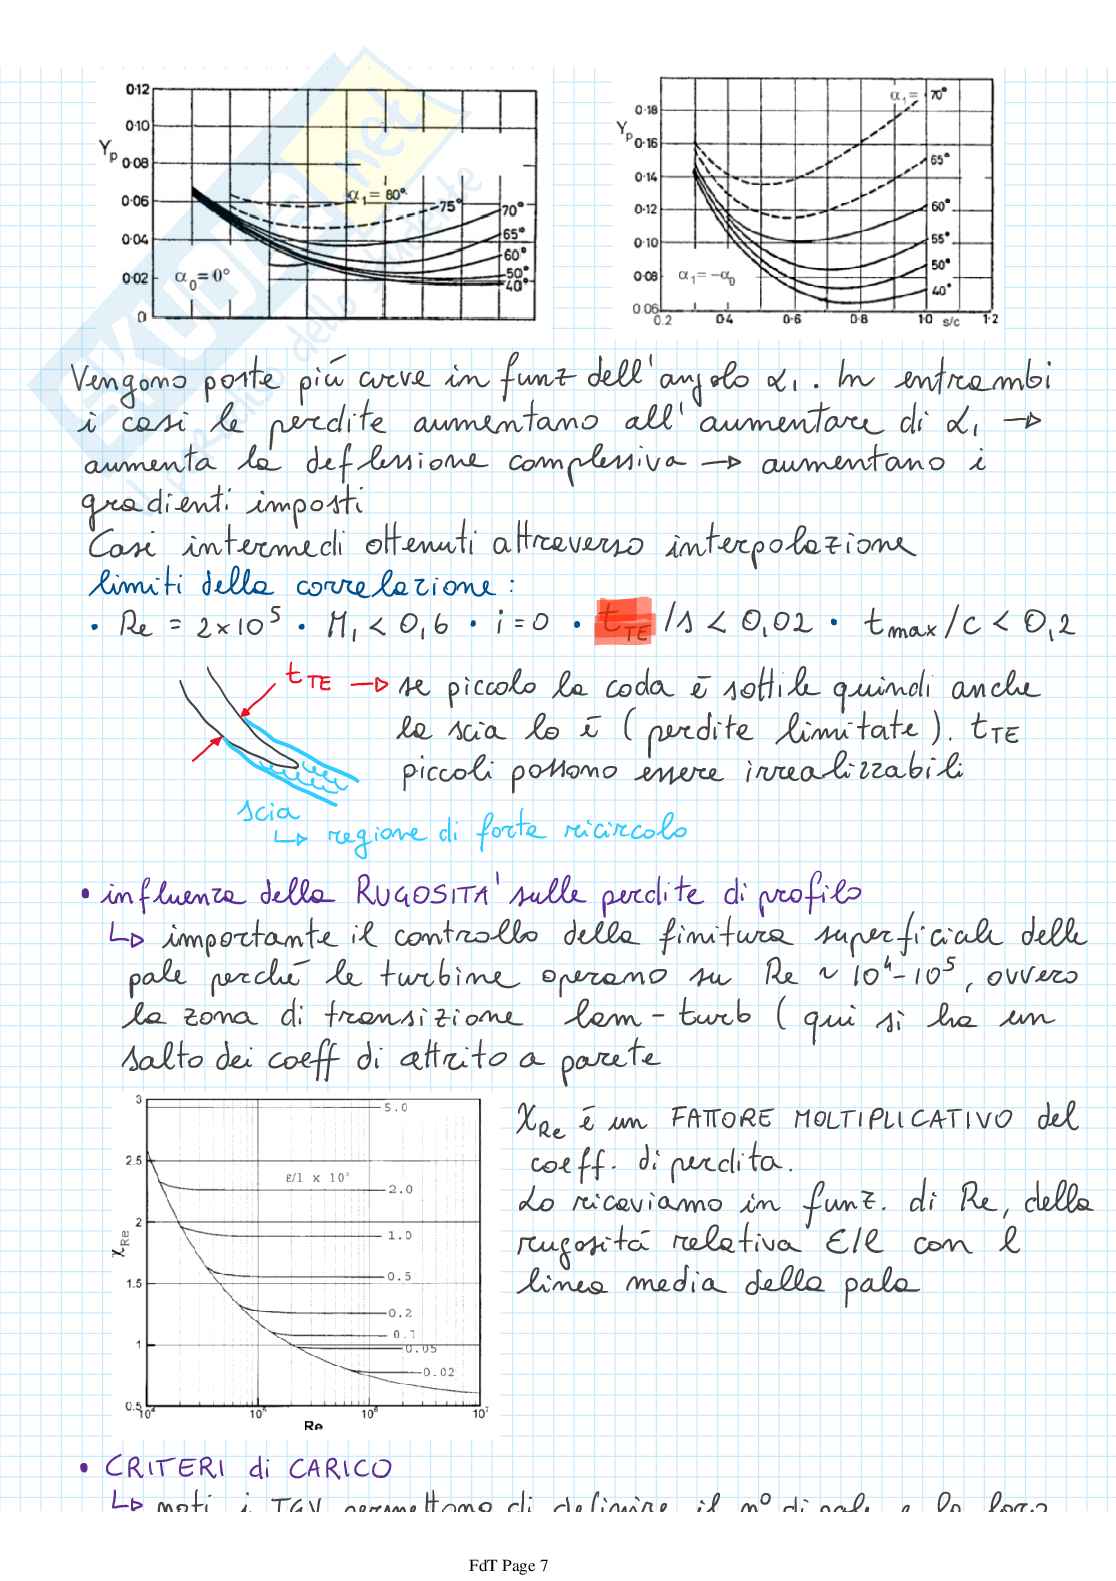 0·12
0·10
Yp
0·08
0·06
0·04
0·02
0
α₁ = 80°
75°
70°
65°
60°
50°
40°
α₀ = 0°
0·18
Yp
0·16
0·14
0·12
0·10
0·08
0.06
0.2
0·4
0·6
0·8
1·0
s/c
1·2
α₁ = 70°
65°
60°
55°
50°
40°
α₁ = -α₀
Vengono poste più curve in funz dell'angolo α₁. In entrambi
i casi le perdite aumentano all'aumentare di α₁ →
aumenta la deflessione complessiva → aumentano i
gradienti imposti
Casi intermedi ottenuti attraverso interpolazione
limiti della correlazione:
• Re = 2×10⁵ • M₁ < 0,6 • i = 0 • tTE/s < 0,02 • tmax/c < 0,2
tTE → se piccolo la coda è sottile quindi anche
la scia lo è (perdite limitate). tTE
piccoli possono essere irrealizzabili
scia
↳ regione di forte ricircolo
• influenza della RUGOSITA' sulle perdite di profilo
↳ importante il controllo della finitura superficiale delle
pale perché le turbine operano su Re ~ 10⁴-10⁵, ovvero
la zona di transizione lam-turb (qui si ha un
salto dei coeff di attrito a parete
3
2.5
2
1.5
1
0.5
χRe
10⁴
10⁵
10⁶
10⁷
Re
5.0
ε/l x 10³
2.0
1.0
0.5
0.2
0.1
0.05
0.02
χRe è un FATTORE MOLTIPLICATIVO del
coeff. di perdita.
Lo ricaviamo in funz. di Re, della
rugosità relativa ε/l con l
linea media della pala
• CRITERI di CARICO
↳ noti i TGV permettono di definire il n° di pale e la loro
FdT Page 7